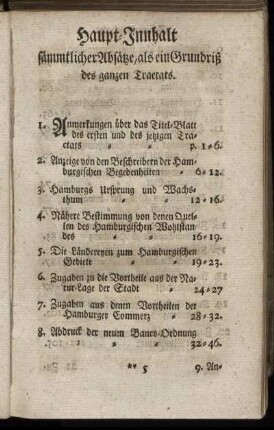 Haupt-Innhalt
sämmtlicher Absätze, als ein Grundriß
des ganzen Tractats.
1. Anmerkungen über das Titel-Blatt
des ersten und des jetzigen Tra-
ctats p. 1-6.
2. Anzeige von den Beschreibern der Ham-
burgischen Begebenheiten 6-12.
3. Hamburgs Ursprung und Wachs-
thum 12-16.
4. Nähere Bestimmung von denen Quel-
len des Hamburgischen Wohlstan-
des 16-19.
5. Die Ländereyen zum Hamburgischen
Gebiete 19-23.
6. Zugaben zu die Vortheile aus der Na-
tur-Lage der Stadt 24-27
7. Zugaben aus denen Vortheilen der
Hamburger Commerz 28-32.
8. Abdruck der neuen Banco-Ordnung
32-46.
** 5 9. An-